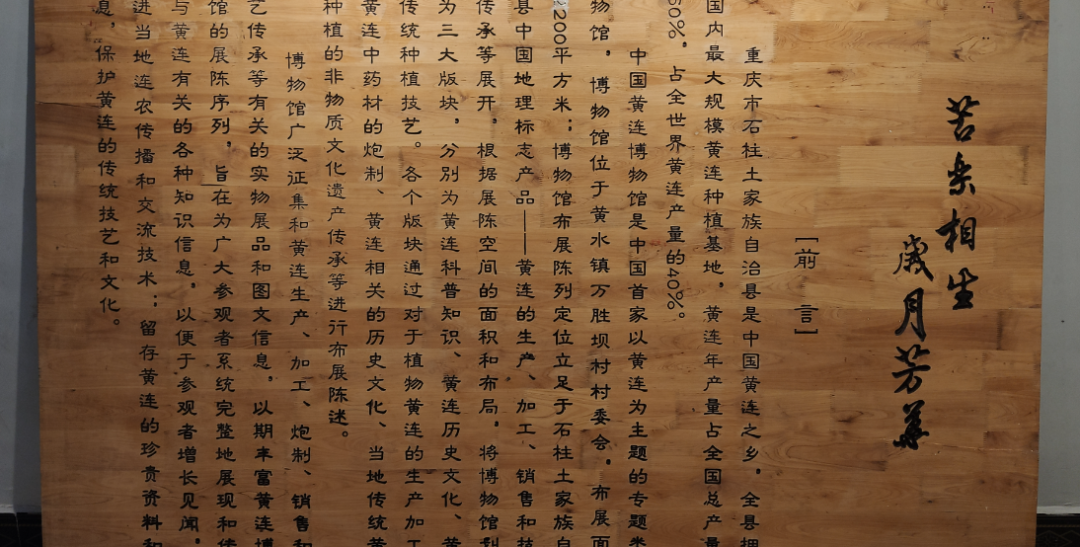 苦楽相生
歲月芳華
[前言]
重庆市石柱土家族自治县是中国黄连之乡，全县拥
国内最大规模黄连种植基地，黄连年产量占全国总产量
60%，占全世界黄连产量的40%。
中国黄连博物馆是中国首家以黄连为主题的专题类
物馆，博物馆位于黄水镇万胜坝村村委会，布展面
200平方米；博物馆布展陈列定位立足于石柱土家族自
县中国地理标志产品——黄连的生产、加工、销售和技
传承等展开，根据展陈空间的面积和布局，将博物馆划
为三大版块，分别为黄连科普知识、黄连历史文化、黄
传统种植技艺。各个版块通过对于植物黄连的生产加工
黄连中药材的炮制、黄连相关的历史文化、当地传统黄
种植的非物质文化遗产传承等进行布展陈述。
博物馆广泛征集和黄连生产、加工、炮制、销售和
艺传承等有关的实物展品和图文信息，以期丰富黄连博
馆的展陈序列，旨在为广大参观者系统完整地展现和传
与黄连有关的各种知识信息，以便于参观者增长见闻，
进当地连农传播和交流技术；留存黄连的珍贵资料和
息，保护黄连的传统技艺和文化。